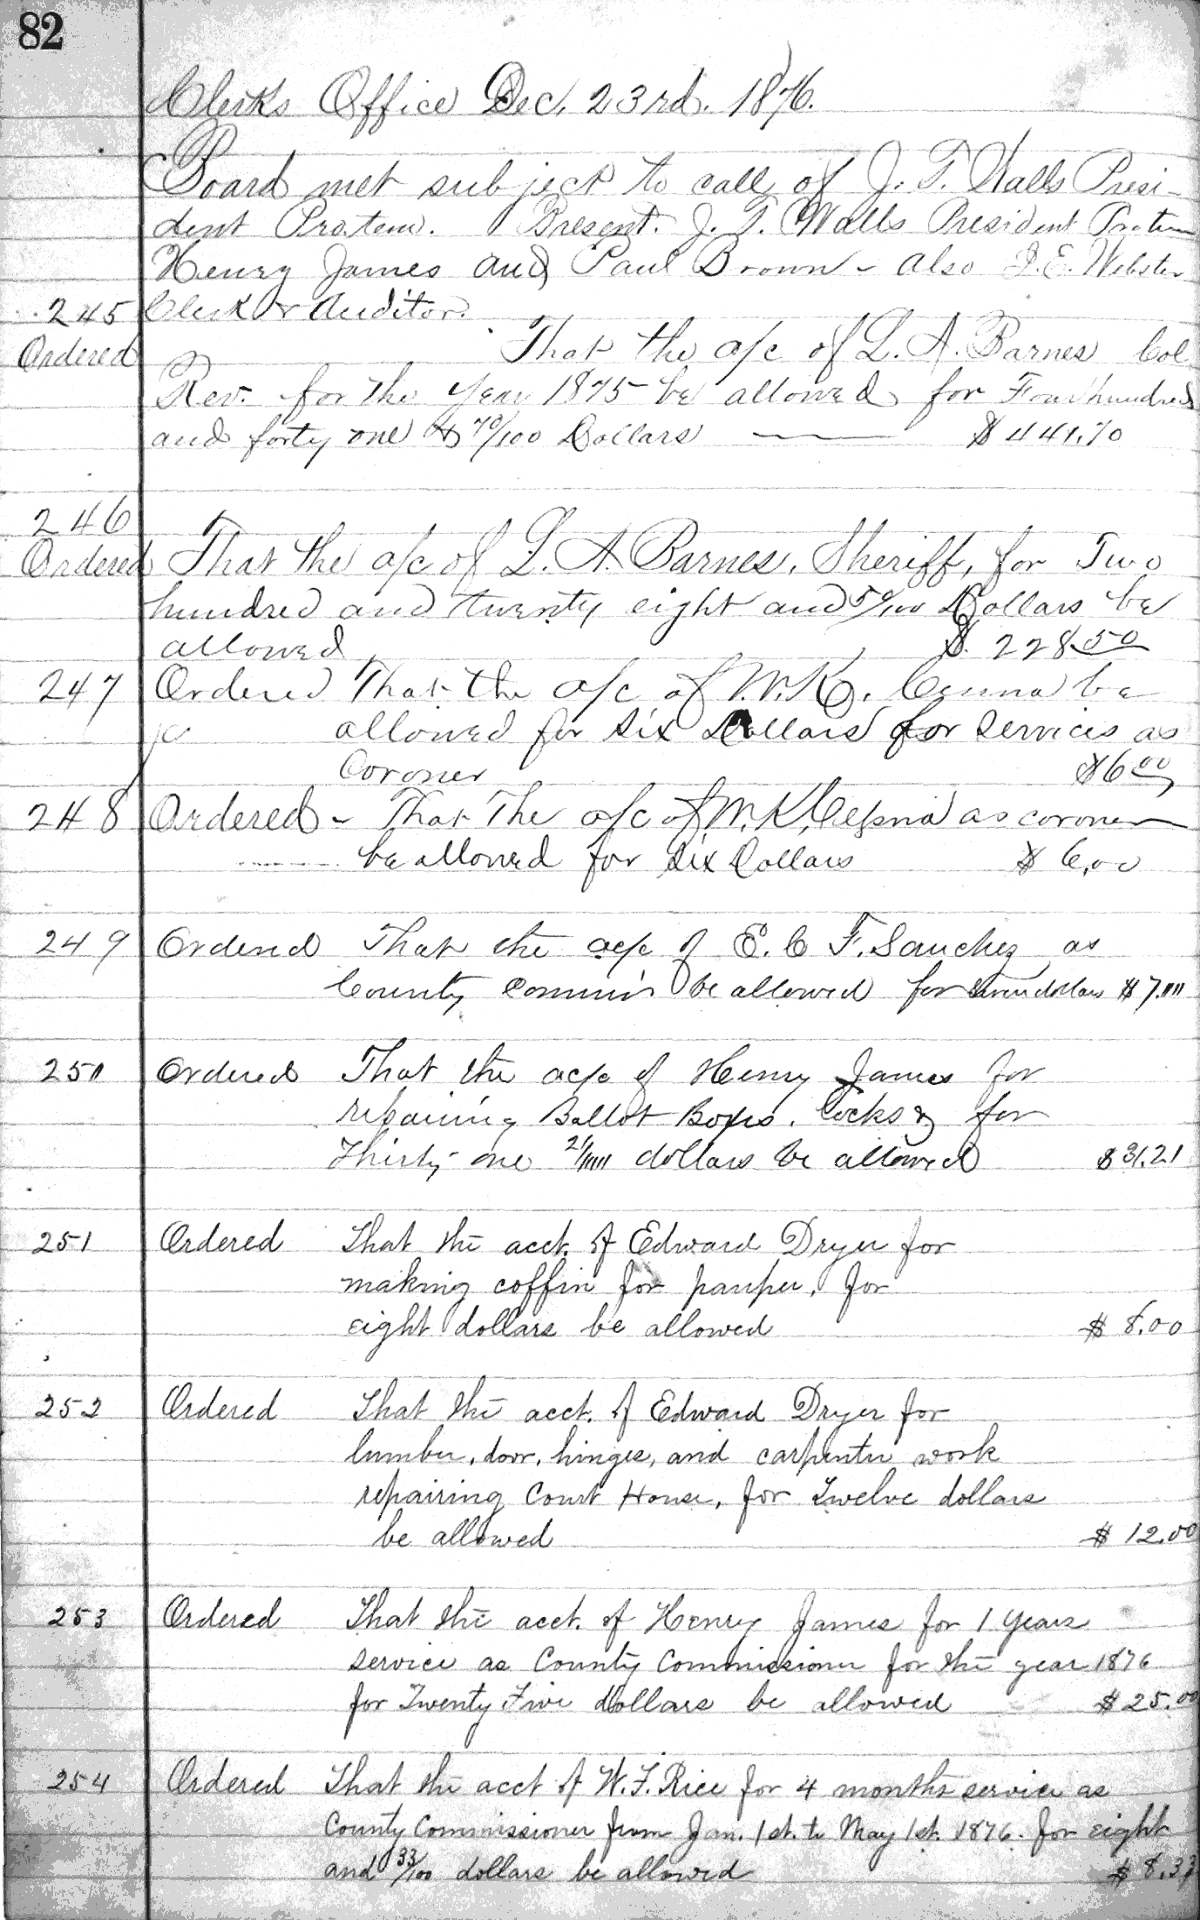 82
Clerks Office Dec. 23rd. 1876.
Board met subject to call of J. T. Walls Presi-
dent Protem. Present. J. T. Walls President Protem
Henry James and Paul Brown - also J. E. Webster
245 Clerk & Auditor.
Ordered That the a/c of L. A. Barnes Col
Rev. for the Year 1875 be allowed for Four hundred
and forty one & 70/100 Dollars — $441.70
246
Ordered That the a/c of L. A. Barnes, Sheriff, for Two
hundred and twenty eight and 50/100 Dollars be
allowed $ 228.50
247 Ordered That the a/c of W. K. Cessna be
allowed for Six Dollars for services as
Coroner $6 00
248 Ordered - That The a/c of W. K. Cessna as coroner
be allowed for Six Dollars $ 6,00
249 Ordered That the a/c of E. C F. Sanchez as
County Commis be allowed for Seven dollars $7.00
250 Ordered That the a/c of Henry James for
repairing Ballot Boxes. Locks & for
Thirty-one 21/100 dollars be allowed $31.21
251 Ordered That the acct. of Edward Dryer for
making coffin for pauper, for
eight dollars be allowed $ 8.00
252 Ordered That the acct. of Edward Dryer for
lumber, door, hinges, and carpenter work
repairing Court House, for Twelve dollars
be allowed $ 12.00
253 Ordered That the acct. of Henry James for 1 Years
service as County Commissioner for the year 1876
for Twenty Five dollars be allowed $25.00
254 Ordered That the acct of W. F. Rice for 4 months service as
County Commissioner from Jan. 1st. to May 1st. 1876. for eight
and 33/100 dollars be allowed $8.33